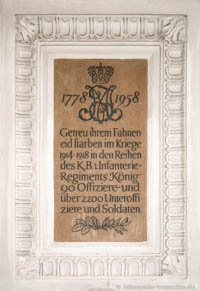 1778 1958
Getreu ihrem Fahnen
eid starben im Kriege
1914-1918 in den Reihen
des K.B.1.Infanterie-
Regiments „König"
90 Offiziere und
über 2200 Unteroffi-
ziere und Soldaten.